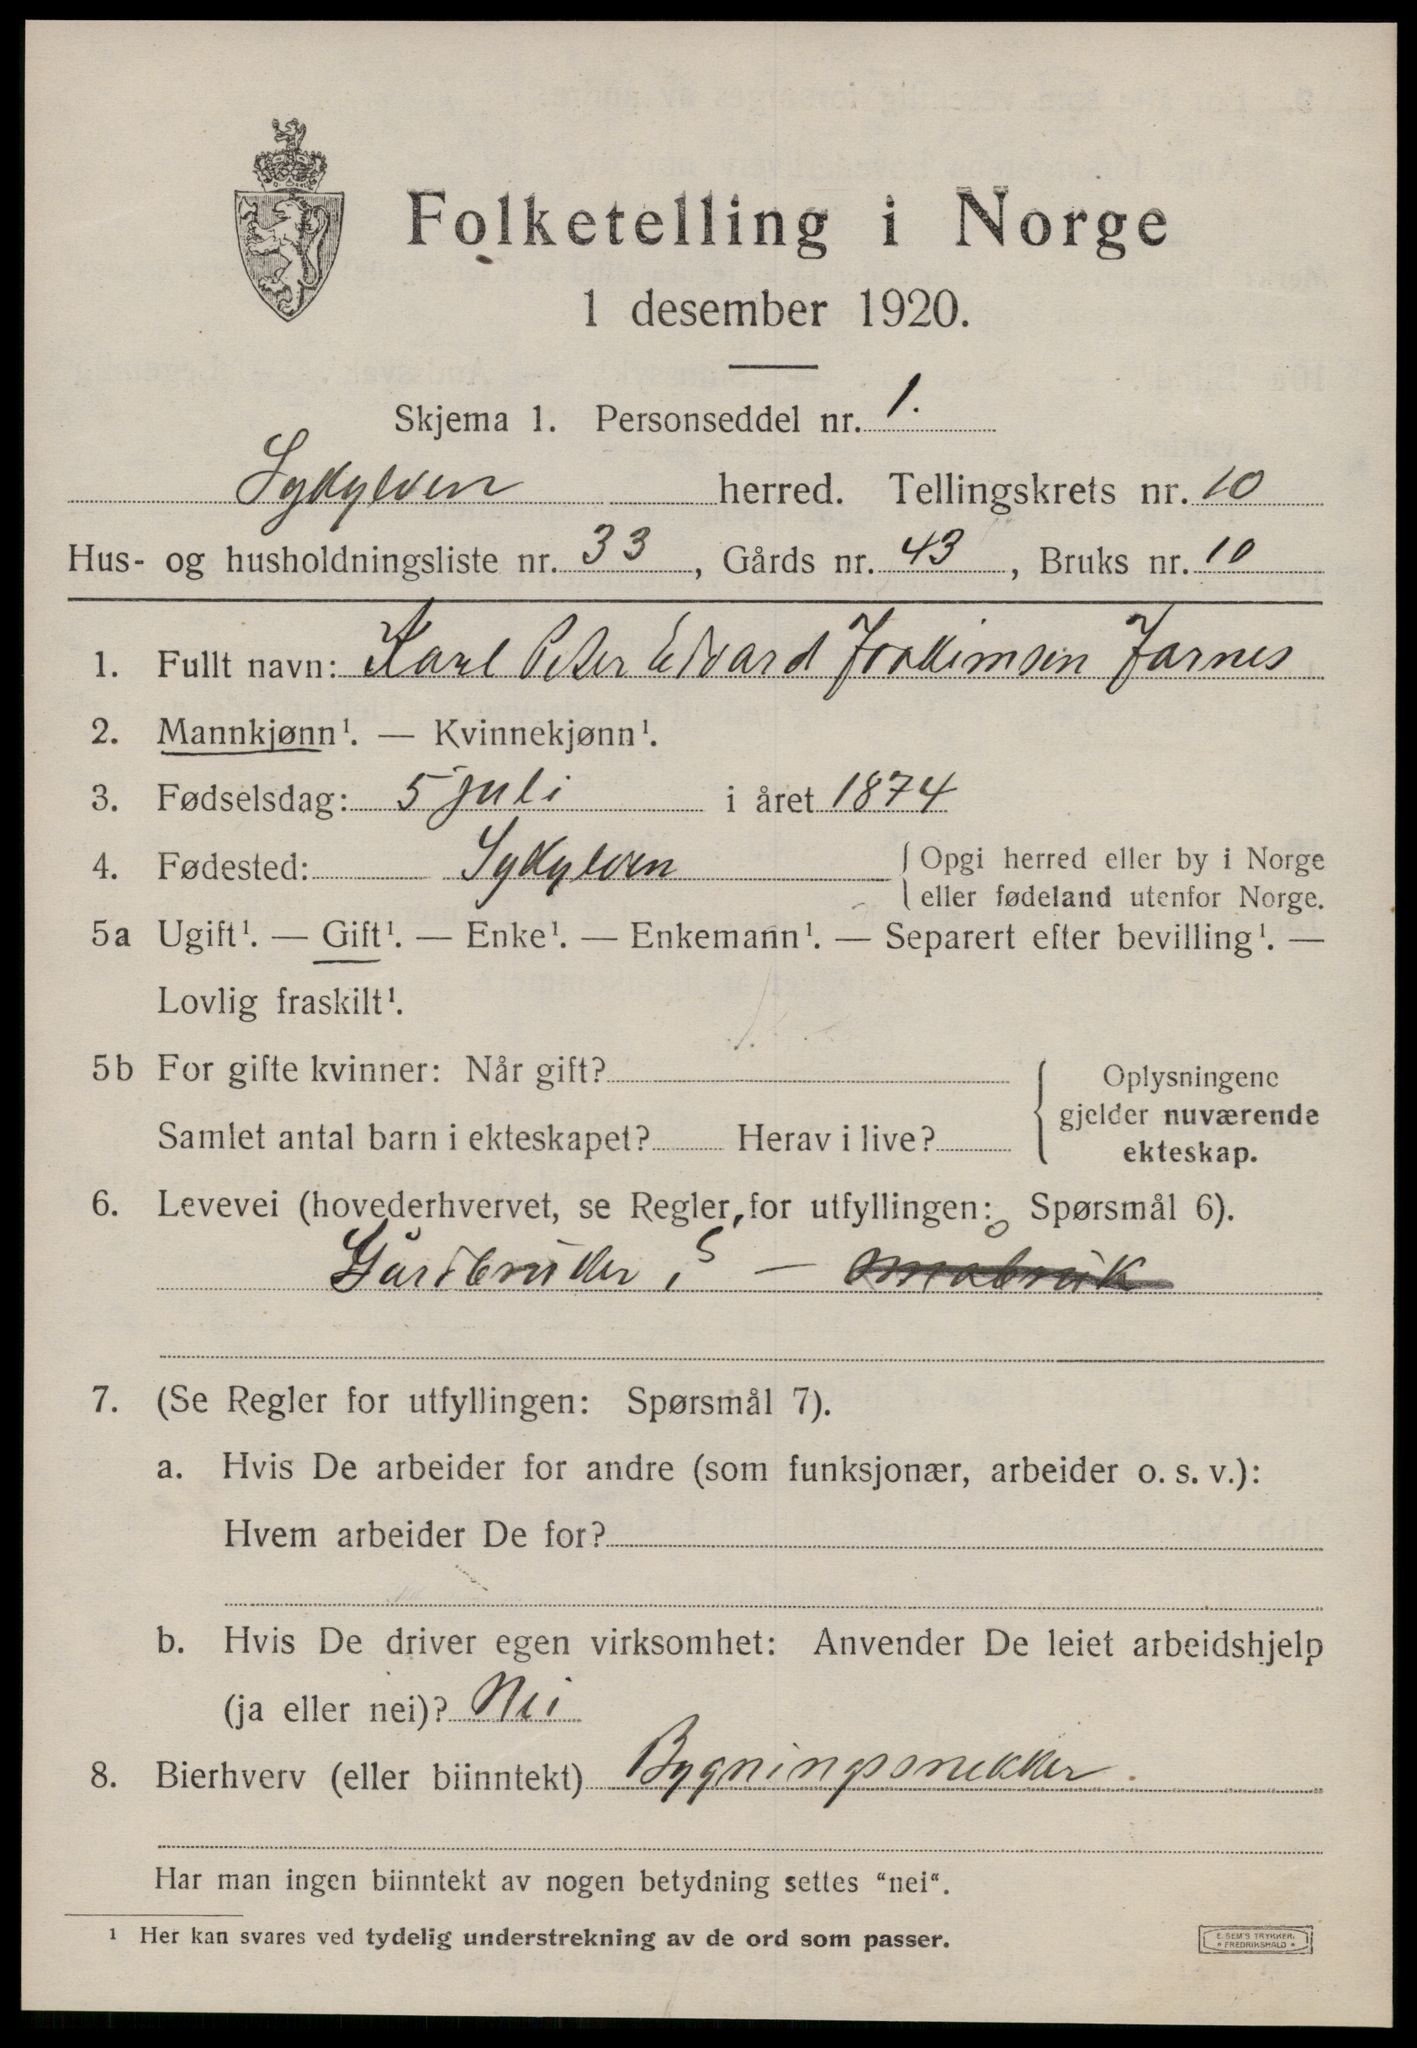 Folketelling i Norge
1 desember 1920.
Skjema 1. Personseddel nr. 1.
Sykylven herred. Tellingskrets nr. 10
Hus- og husholdningsliste nr. 33, Gårds nr. 43, Bruks nr. 10
1. Fullt navn: Karl Peter Edvard Joakimsen Jarnes
2. Mannkjønn¹. — Kvinnekjønn¹.
3. Fødselsdag: 5 juli i året 1874
4. Fødested: Sykylven { Opgi herred eller by i Norge
eller fødeland utenfor Norge.
5a Ugift¹. — Gift¹. — Enke¹. — Enkemann¹. — Separert efter bevilling¹. —
Lovlig fraskilt¹.
5b For gifte kvinner: Når gift?
Samlet antal barn i ekteskapet? Herav i live?
Oplysningene
gjelder nuværende
ekteskap.
6. Levevei (hovederhvervet, se Regler for utfyllingen: Spørsmål 6).
Gårdbruker S — smabruk
7. (Se Regler for utfyllingen: Spørsmål 7).
a. Hvis De arbeider for andre (som funksjonær, arbeider o. s. v.):
Hvem arbeider De for?
b. Hvis De driver egen virksomhet: Anvender De leiet arbeidshjelp
(ja eller nei)? Nei
8. Bierhverv (eller biinntekt) Bygningssnekker.
Har man ingen biinntekt av nogen betydning settes "nei".
¹ Her kan svares ved tydelig understrekning av de ord som passer.
E. SEM'S TRYKKERI,
* FREDRIKSHALD *